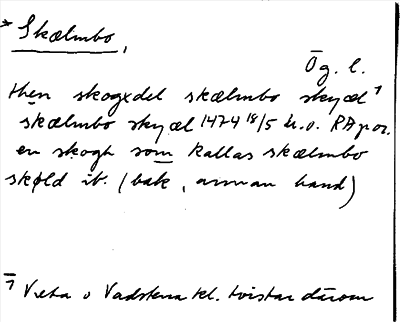 * Skælmbo,
Ög. l.
then skogxdel skælmbo skyæl ⁊
skælmbo skyæl 1474 18/5 u.o. RAp or.
en skogh som kallas skælmbo
skøld ib. (bak, annan hand)
⁊ Vreta o Vadstena kl. tvistar därom